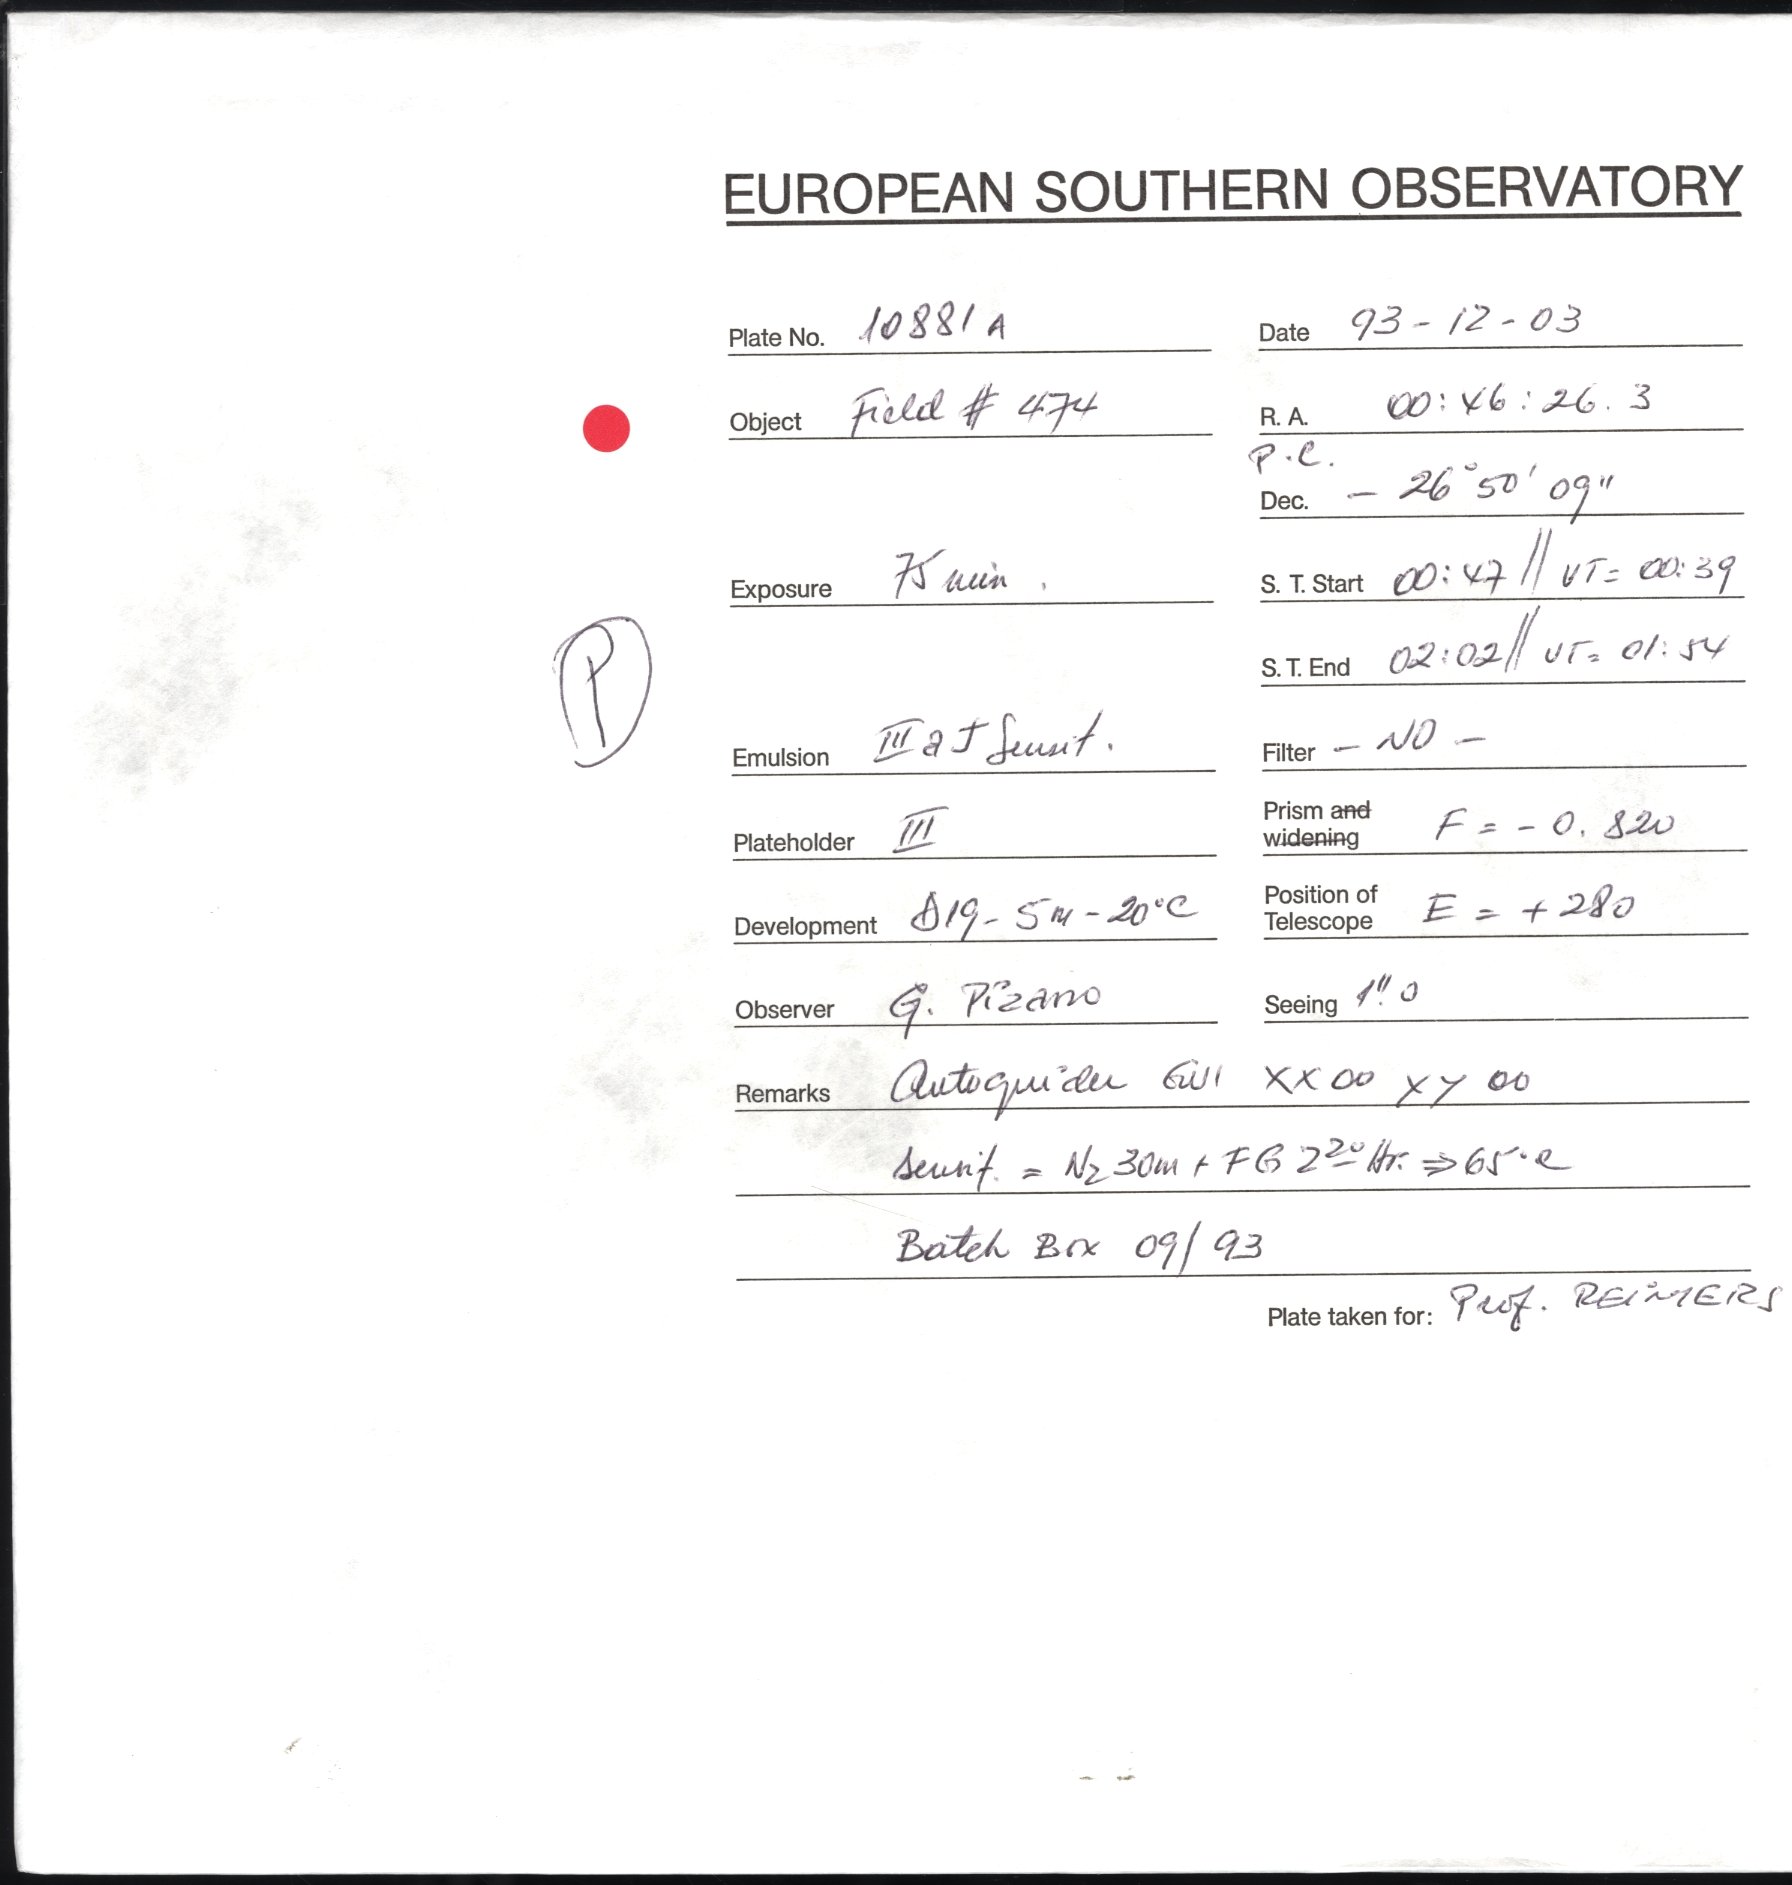 EUROPEAN SOUTHERN OBSERVATORY
Plate No. 10881 A
Date 93-12-03
Object Field # 474
R. A. 00:46:26.3
P.C.
Dec. - 26°50'09"
Exposure 75 min.
S. T. Start 00:47 // UT= 00:39
S. T. End 02:02 // UT= 01:54
P
Emulsion III a J Sensit.
Filter - NO -
Plateholder III
Prism and widening F = - 0.820
Development D19 - 5m - 20°C
Position of Telescope E = + 280
Observer G. Pizarro
Seeing 1".0
Remarks Autoguider XX 00 XY 00
Sensit. = N2 30m + FG 2 20 Hr. ⇒ 65°C
Batch Box 09/93
Plate taken for: Prof. REIMERS